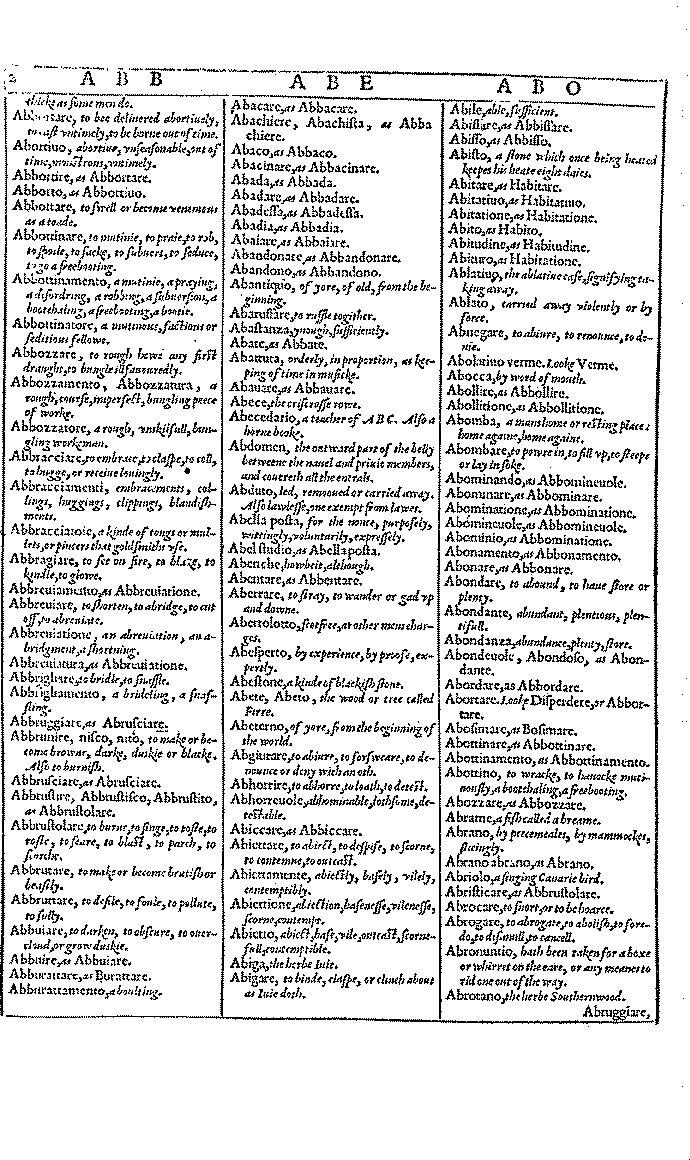 2 A B B A B E A B O
thicke as some men do.
Abbortare, to bee deliuered abortiuely,
to cast vntimely, to be borne out of time.
Abortiuo, abortiue, vnseasonable, out of
time, monstrous, vntimely.
Abbortire, as Abbortare.
Abborto, as Abbortiuo.
Abbottare, to swell or become venemous
as a toade.
Abbottinare, to mutinie, to praie, to rob,
to spoile, to sacke, to subuert, to seduce,
to go a freebooting.
Abbottinamento, a mutinie, a praying,
a disordring, a robbing, a subuersion, a
bootehaling, a freebooting, a bootie.
Abbottinatore, a mutinous, factious or
seditious fellowe.
Abbozzare, to rough hewe any first
draught, to bungle ilfauouredly.
Abbozzamento, Abbozzatura, a
rough, course, imperfect, bungling peece
of worke.
Abbozzatore, a rough, vnskilfull, bun-
gling workeman.
Abbracciare, to embrace, to claspe, to coll,
to hugge, or receiue louingly.
Abbracciamenti, embracements, col-
lings, huggings, clippings, blandish-
ments.
Abbracciatoie, a kinde of tongs or mul-
lets, or pincers that goldsmiths vse.
Abbragiare, to set on fire, to blaze, to
kindle, to glowe.
Abbreuiamento, as Abbreuiatione.
Abbreuiare, to shorten, to abridge, to cut
off, to abreuiate.
Abbreuiatione, an abreuiation, an a-
bridgment, a shortning.
Abbreuiatura, as Abbreuiatione.
Abbrigliare, to bridle, to snaffle.
Abbrigliamento, a brideling, a snaf-
fling.
Abbruggiare, as Abrusciare.
Abbrunire, nisco, nito, to make or be-
come browne, darke, duskie or blacke.
Also to burnish.
Abbrusciare, as Abrusciare.
Abbrustire, Abbrustisco, Abbrustito,
as Abbrustolare.
Abbrustolare, to burne, to singe, to toste, to
roste, to seare, to blast, to parch, to
scorche.
Abbrutare, to make or become brutish or
beastly.
Abbruttare, to defile, to foule, to pollute,
to sully.
Abbuiare, to darken, to obscure, to ouer-
cloud, or grow duskie.
Abbuire, as Abbuiare.
Abburattare, as Burattare.
Abburattamento, a boulting.
Abacare, as Abbacare.
Abachiere, Abachista, as Abba
chiere.
Abaco, as Abbaco.
Abacinare, as Abbacinare.
Abada, as Abbada.
Abadare, as Abbadare.
Abadessa, as Abbadessa.
Abadia, as Abbadia.
Abaiare, as Abbaiare.
Abandonare, as Abbandonare.
Abandono, as Abbandono.
Abantiquo, of yore, of old, from the be-
ginning.
Abaruffare, to ruffle together.
Abastanza, ynough, sufficiently.
Abate, as Abbate.
Abattuta, orderly, in proportion, as kee-
ping of time in musicke.
Abauare, as Abbauare.
Abece, the criscrosse rowe.
Abecedario, a teacher of A B C. Also a
horne booke.
Abdomen, the outward part of the belly
betweene the nauel and priuie members,
and couereth all the entrals.
Abduto, led, remooued or carried away.
Also lawlesse, one exempt from lawes.
Abella posta, for the nonce, purposely,
wittingly, voluntarily, expressely.
Abel studio, as Abella posta.
Abenche, howbeit, although.
Abentare, as Abbentare.
Aberrare, to stray, to wander or gad vp
and downe.
Abertolotto, scotfree, at other mens char-
ges.
Abesperto, by experience, by proofe, ex-
pertly.
Abestone, a kinde of blackish stone.
Abete, Abeto, the wood or tree called
Firre.
Abeterno, of yore, from the beginning of
the world.
Abgiurare, to abiure, to forsweare, to de-
nounce or deny with an oth.
Abhorrire, to abhorre, to loath, to detest.
Abhorreuole, abhominable, lothsome, de-
testable.
Abiccare, as Abbiccare.
Abiettare, to abiect, to despise, to scorne,
to contemne, to outcast.
Abiettamente, abiectly, basely, vilely,
contemptibly.
Abiettione, abiection, basenesse, vilenesse,
scorne, contempt.
Abietto, abiect, base, vile, outcast, scorne-
full, contemptible.
Abiga, the herbe Iuie.
Abigare, to binde, claspe, or clinch about
as Iuie doth.
Abile, able, sufficient.
Abissare, as Abbissare.
Abisso, as Abbisso.
Abisto, a stone which once being heated
keepes his heate eight daies.
Abitare, as Habitare.
Abitatiuo, as Habitatiuo.
Abitatione, as Habitatione.
Abito, as Habito.
Abitudine, as Habitudine.
Abituro, as Habitatione.
Ablatiuo, the ablatiue case, signifying ta-
king away.
Ablato, carried away violently or by
force.
Abnegare, to abiure, to renounce, to de-
nie.
Abolatiuo verme. Looke Verme.
Abocca, by word of mouth.
Abollire, as Abbollire.
Abollitione, as Abbollitione.
Abomba, a mans home or resting place:
home againe, home againe.
Abombare, to powre in, to fill vp, to steepe
or lay in soke.
Abominando, as Abbomineuole.
Abominare, as Abbominare.
Abominatione, as Abbominatione.
Abomineuole, as Abbomineuole.
Abominio, as Abbominatione.
Abonamento, as Abbonamento.
Abonare, as Abbonare.
Abondare, to abound, to haue store or
plenty.
Abondante, abundant, plenteous, plen-
tifull.
Abondanza, abundance, plenty, store.
Abondeuole, Abondoso, as Abon-
dante.
Abordare, as Abbordare.
Abortare. Looke Disperdere, or Abbor-
tare.
Abosimare, as Bosimare.
Abottinare, as Abbottinare.
Abottinamento, as Abbottinamento.
Abottino, to wracke, to hauocke muti-
nously, a bootehaling, a freebooting.
Abozzare, as Abbozzare.
Abrame, a fish called a breame.
Abrano, by precemeales, by mammockes,
slicingly.
Abrano abrano, as Abrano.
Abriolo, a singing Canarie bird.
Abristicare, as Abbrustolare.
Abrocare, to snort, or to be hoarce.
Abrogare, to abrogate, to abolish, to fore-
do, to disanull, to cancell.
Abronuntio, hath been taken for a boxe
or whirret on the eare, or any meanes to
rid one out of the way.
Abrotano, the herbe Southernwood.
Abruggiare,